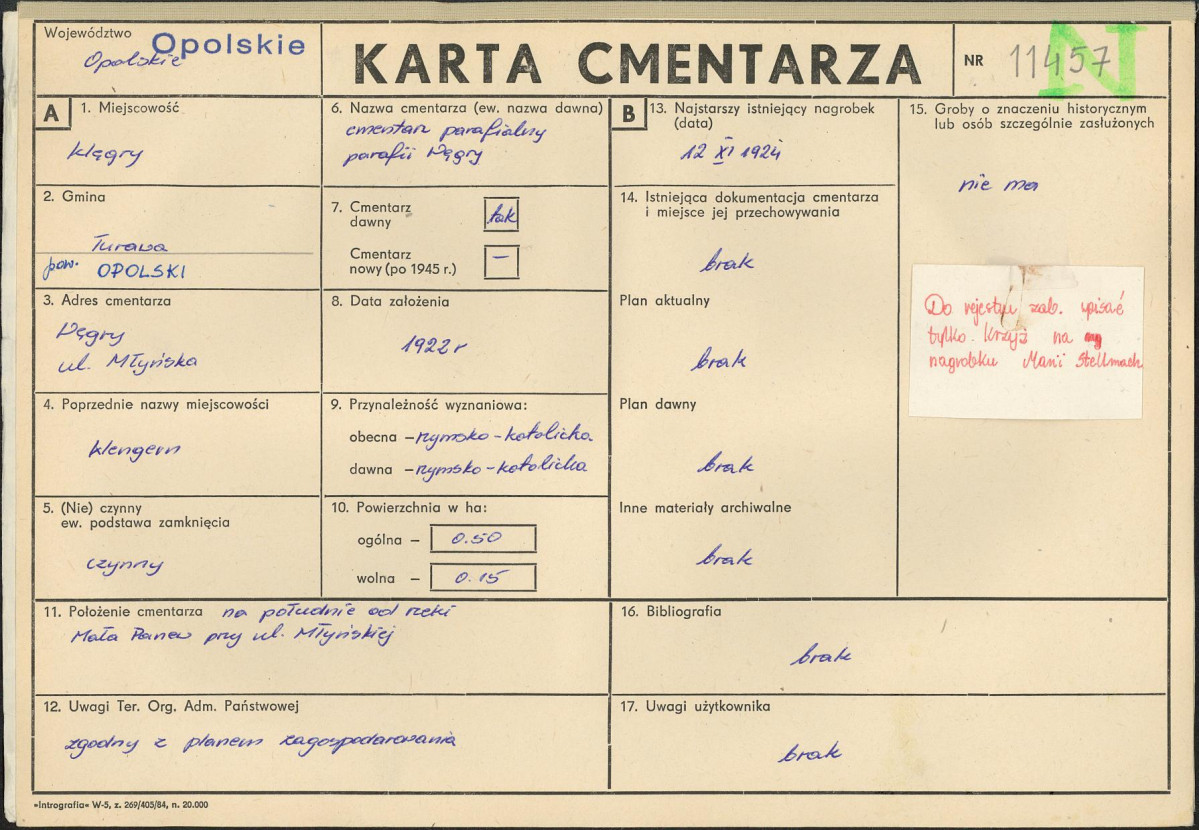 Województwo
Opolskie
Opolskie
KARTA CMENTARZA
NR 11457
N
A
1. Miejscowość
Węgry
2. Gmina
Turawa
pow. OPOLSKI
3. Adres cmentarza
Węgry
ul. Młyńska
4. Poprzednie nazwy miejscowości
Wengern
5. (Nie) czynny
ew. podstawa zamknięcia
czynny
6. Nazwa cmentarza (ew. nazwa dawna)
cmentarz parafialny
parafii Węgry
7. Cmentarz
dawny
tak
Cmentarz
nowy (po 1945 r.)
—
8. Data założenia
1922 r
9. Przynależność wyznaniowa:
obecna – rzymsko-katolicka
dawna – rzymsko-katolicka
10. Powierzchnia w ha:
ogólna – 0.50
wolna – 0.15
B
13. Najstarszy istniejący nagrobek
(data)
12 XI 1924
14. Istniejąca dokumentacja cmentarza
i miejsce jej przechowywania
brak
Plan aktualny
brak
Plan dawny
brak
Inne materiały archiwalne
brak
15. Groby o znaczeniu historycznym
lub osób szczególnie zasłużonych
nie ma
Do rejestru zab. wpisać
tylko. Krzyż na
nagrobku Marii Stellmach
11. Położenie cmentarza na południe od rzeki
Mała Panew przy ul. Młyńskiej
12. Uwagi Ter. Org. Adm. Państwowej
zgodny z planem zagospodarowania
16. Bibliografia
brak
17. Uwagi użytkownika
brak
»Intrografia« W-5, z. 269/405/84, n. 20.000